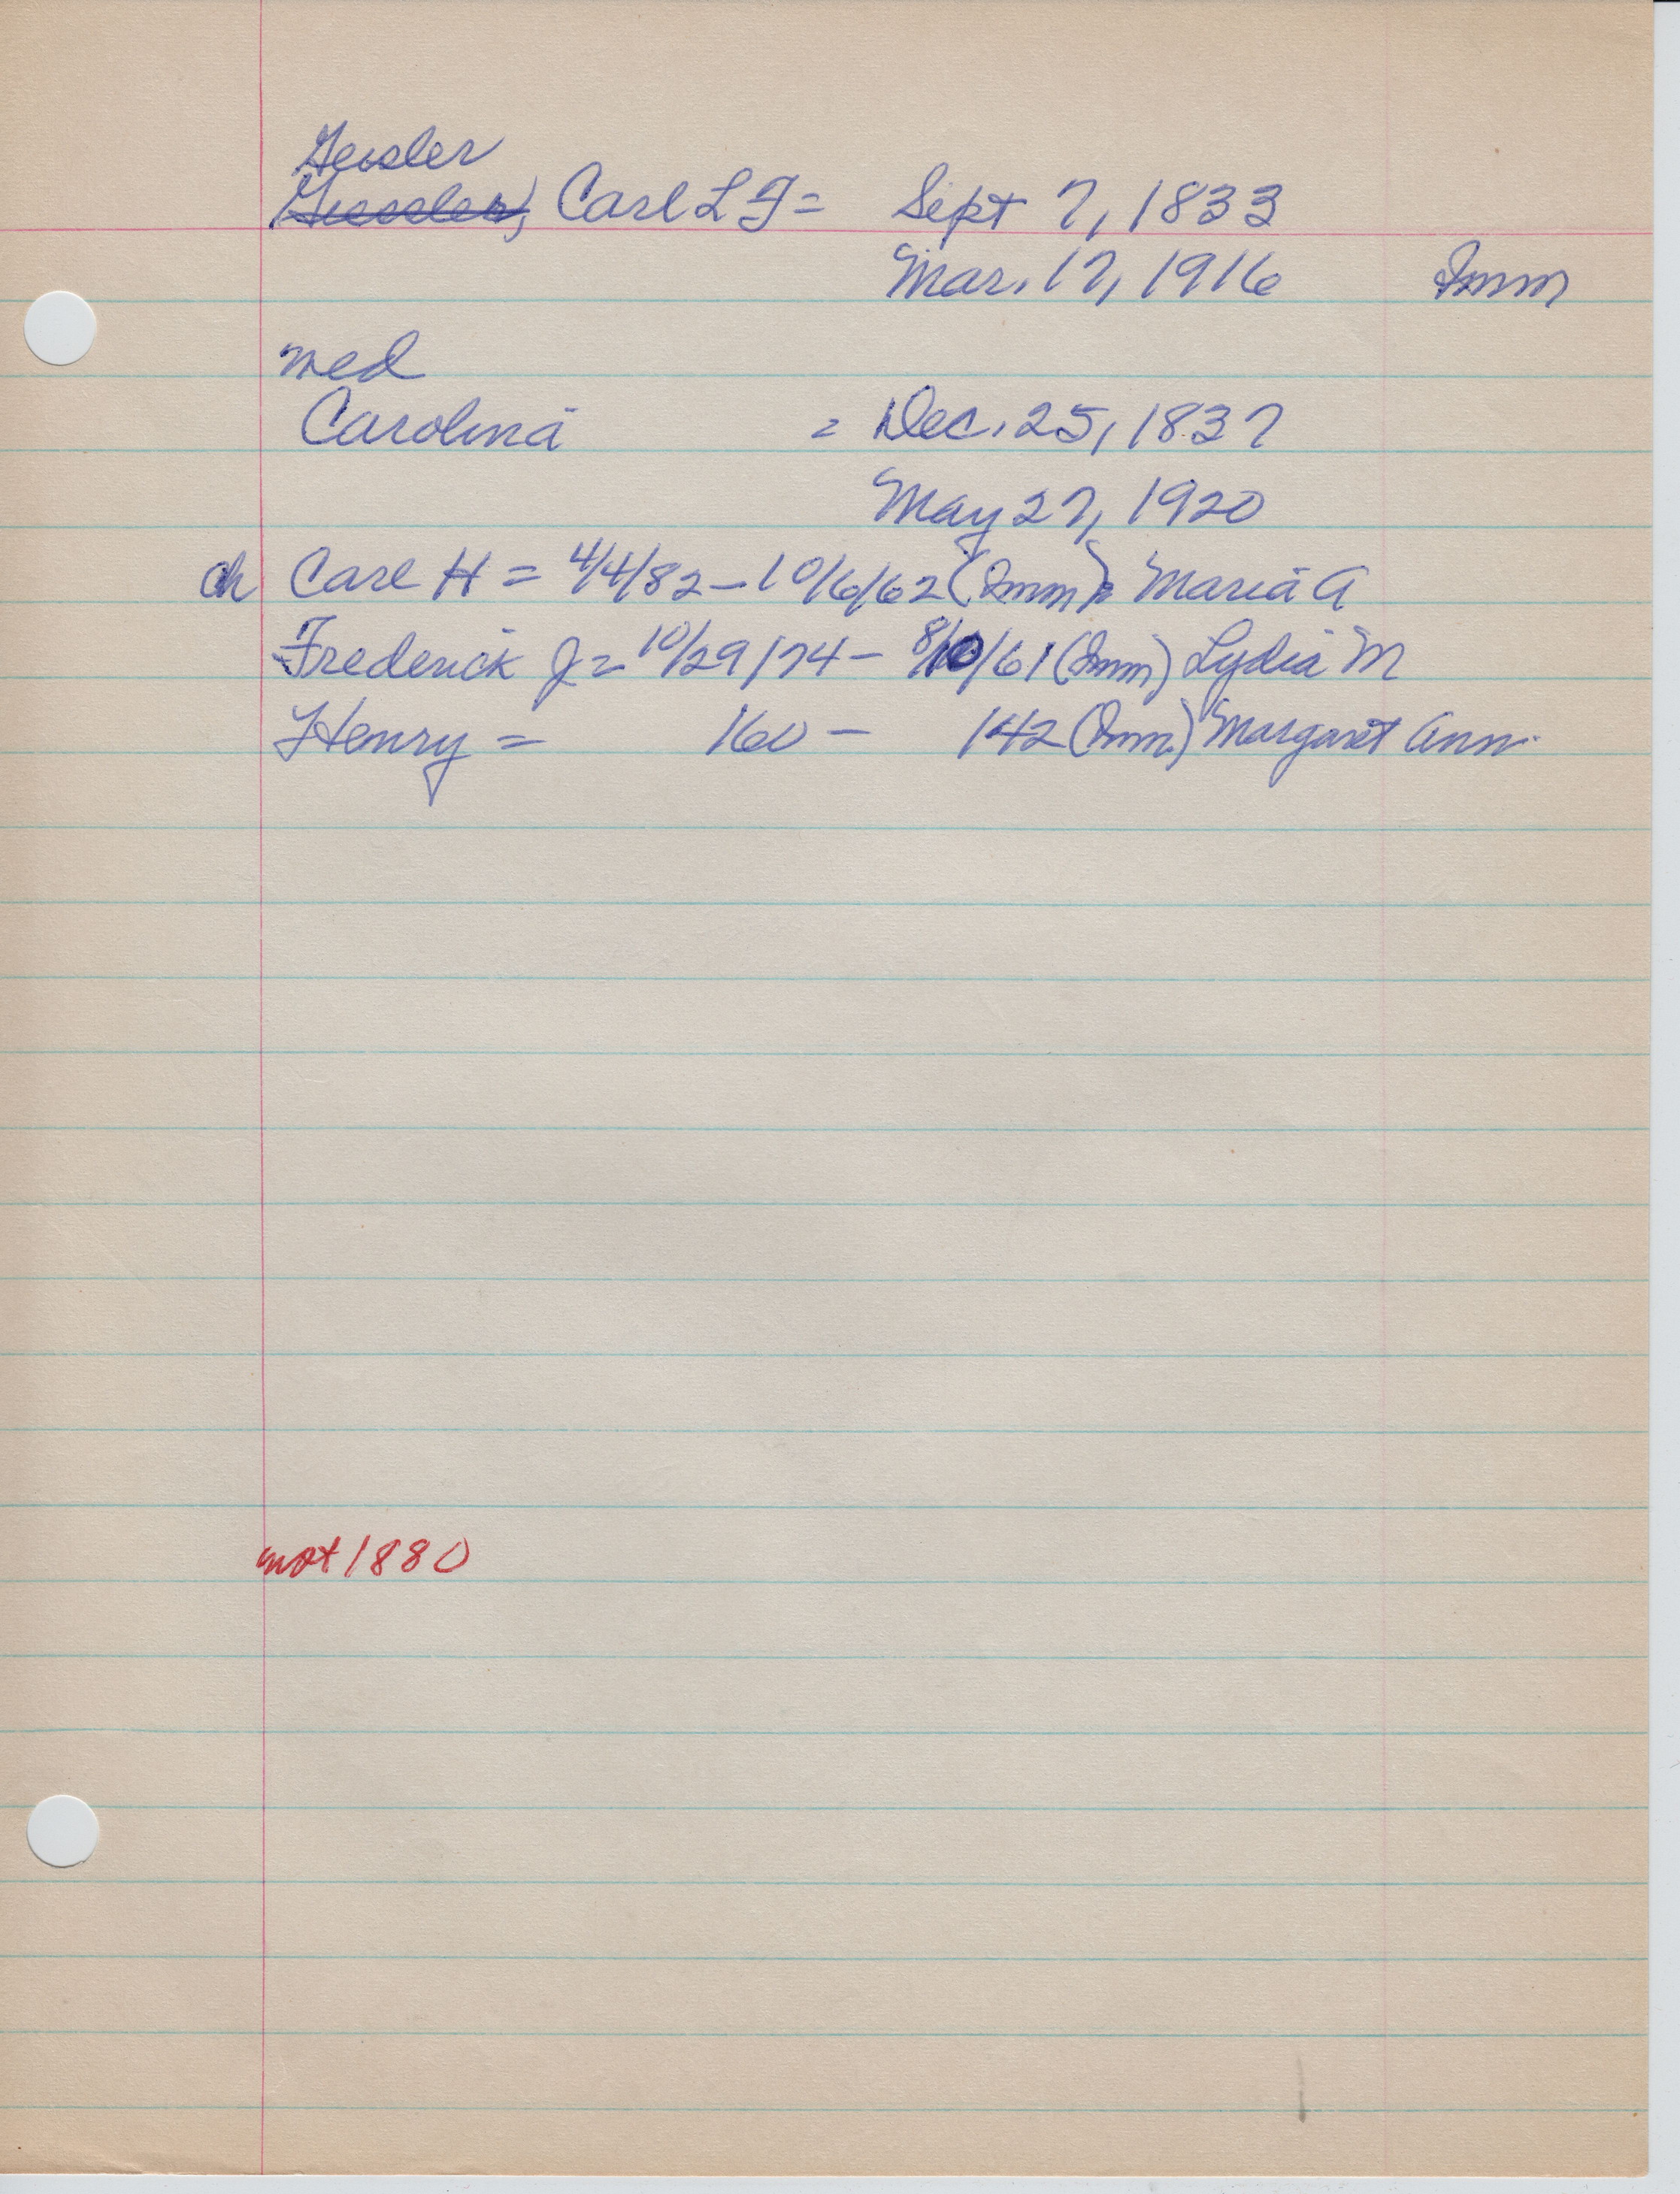 Geisler
Giessler, Carl L F = Sept 7, 1833
Mar. 17, 1916 Imm
med
Carolina = Dec. 25, 1837
May 27, 1920
ch Carl H = 4/4/82 - 10/6/62 (Imm) Maria A
Frederick J = 10/29/74 - 8/10/61 (Imm) Lydia M
Henry = /60 - /42 (Imm.) Margaret Ann
not 1880